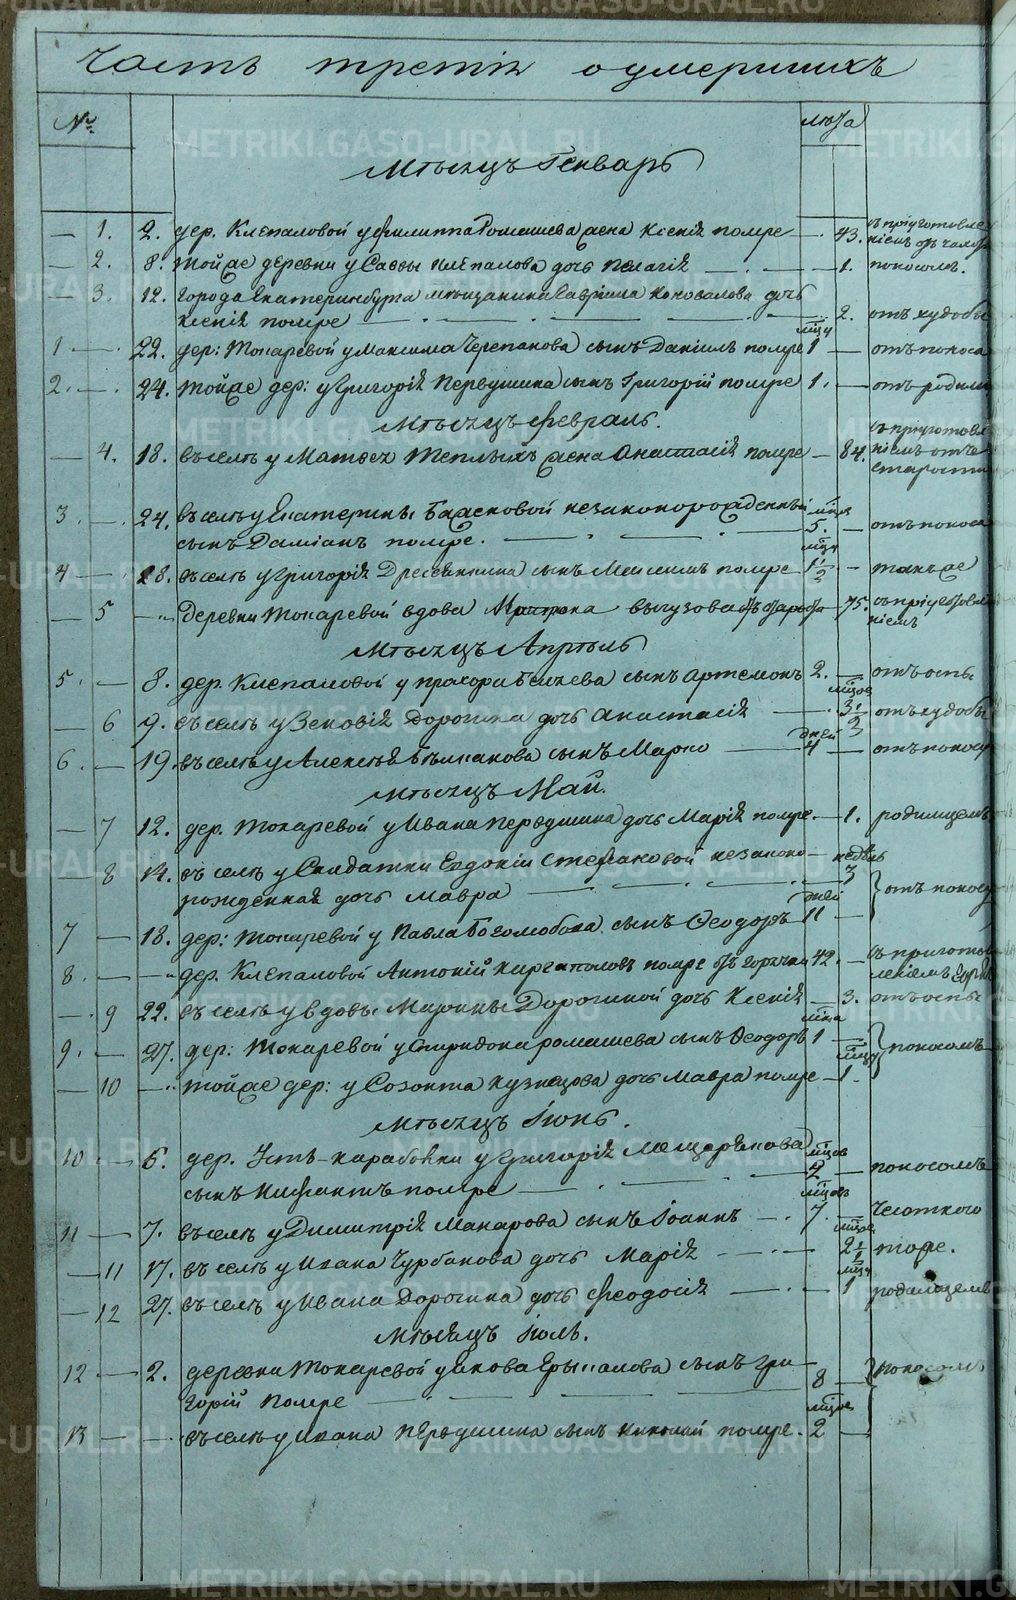 Часть третія о умершихъ
№ лѣта
Мѣсяцъ Генварь
— 1. 2. дер. Клепаловой у Филиппа Ромашева жена Ксенія помре — 43. съ пріуготовле
ніемъ отъ
— 2. 8. той же деревни у Саввы Клепалова дочь Пелагія — 1. поносомъ.
— 3. 12. города Екатеринбурга мѣщанина Гавріила Коновалова дочь
Ксенія помре — 2. отъ худобы
мцу
1 — 22. дер: Токаревой у Максима Черепанова сынъ Даніилъ помре 1 — отъ поноса
2. — 24. той же дер: у Григорія Первушина сынъ Григорій помре 1. — отъ родим
Мѣсяцъ Февраль.
— 4. 18. въ селѣ у Матвея Теплыхъ жена Анастасія помре — 84. съ пріуготовл
ніемъ отъ
старости
3. — 24. въ селѣ у Екатерины Бажековой незаконорожденный
сынъ Даміанъ помре. — 5. — отъ поноса
мцу
4 — 28. въ селѣ у Григорія сынъ помре 1 1/2 — также
— 5 — " деревни Токаревой вдова Матрона — 75. съ пріуготовле
ніемъ
Мѣсяцъ Апрѣль
5. — 8. дер. Клепаловой у Прохора Беляева сынъ Артемонъ 2. — отъ оспы
мцов
— 6 9. въ селѣ у Зиновія Дорогина дочь Анастасія — 3 1/2 отъ худобы
дней
6. — 19. въ селѣ у Алексѣя сынъ Марко — 4 — отъ поносу
Мѣсяцъ Май.
— 7 12. дер. Токаревой у Ивана Первушина дочь Марія помре. — 1. родимцемъ
— 8 14. въ селѣ у Солдатки Евдокіи Стефановой незаконо — недѣль
рожденная дочь Мавра — 3 отъ поносу
дней
7 — 18. дер: Токаревой у Павла Боголюбова сынъ Ѳеодоръ 11 —
8. — — " дер. Клепаловой Антоній Каргаполовъ помре отъ горячки 42. — съ пригото
леніемъ
— 9 22. въ селѣ у вдовы Марины Дорогиной дочь Ксенія — 3. отъ оспы
9. — 27. дер: Токаревой у Спиридона Ромашева сынъ Ѳеодоръ 1 — поносомъ
мцу
— 10 — " той же дер: у Созонта Кузнецова дочь Мавра помре — 1.
Мѣсяцъ Іюнь.
10 — 6. дер. Усть-карабовки у Григорія Мещерякова мцов
сынъ помре — 2 — поносомъ
мцовъ
11 — 7. въ селѣ у Димитрія Макарова сынъ Іоаннъ — 7 — Чесоткою
мцов
— 11 17. въ селѣ у Ивана Чурбанова дочь Марія — 2 тоже.
мцу
— 12 27. въ селѣ у Ивана Дорогина дочь Феодосія — 1 родимцемъ
Мѣсяцъ Іюль.
12 — 2. деревни Токаревой у Якова Ерыкалова сынъ Гри
горій помре — 8 — поносомъ
мцов
13 — — въ селѣ у Ивана Первушина сынъ Николай помре. 2 —